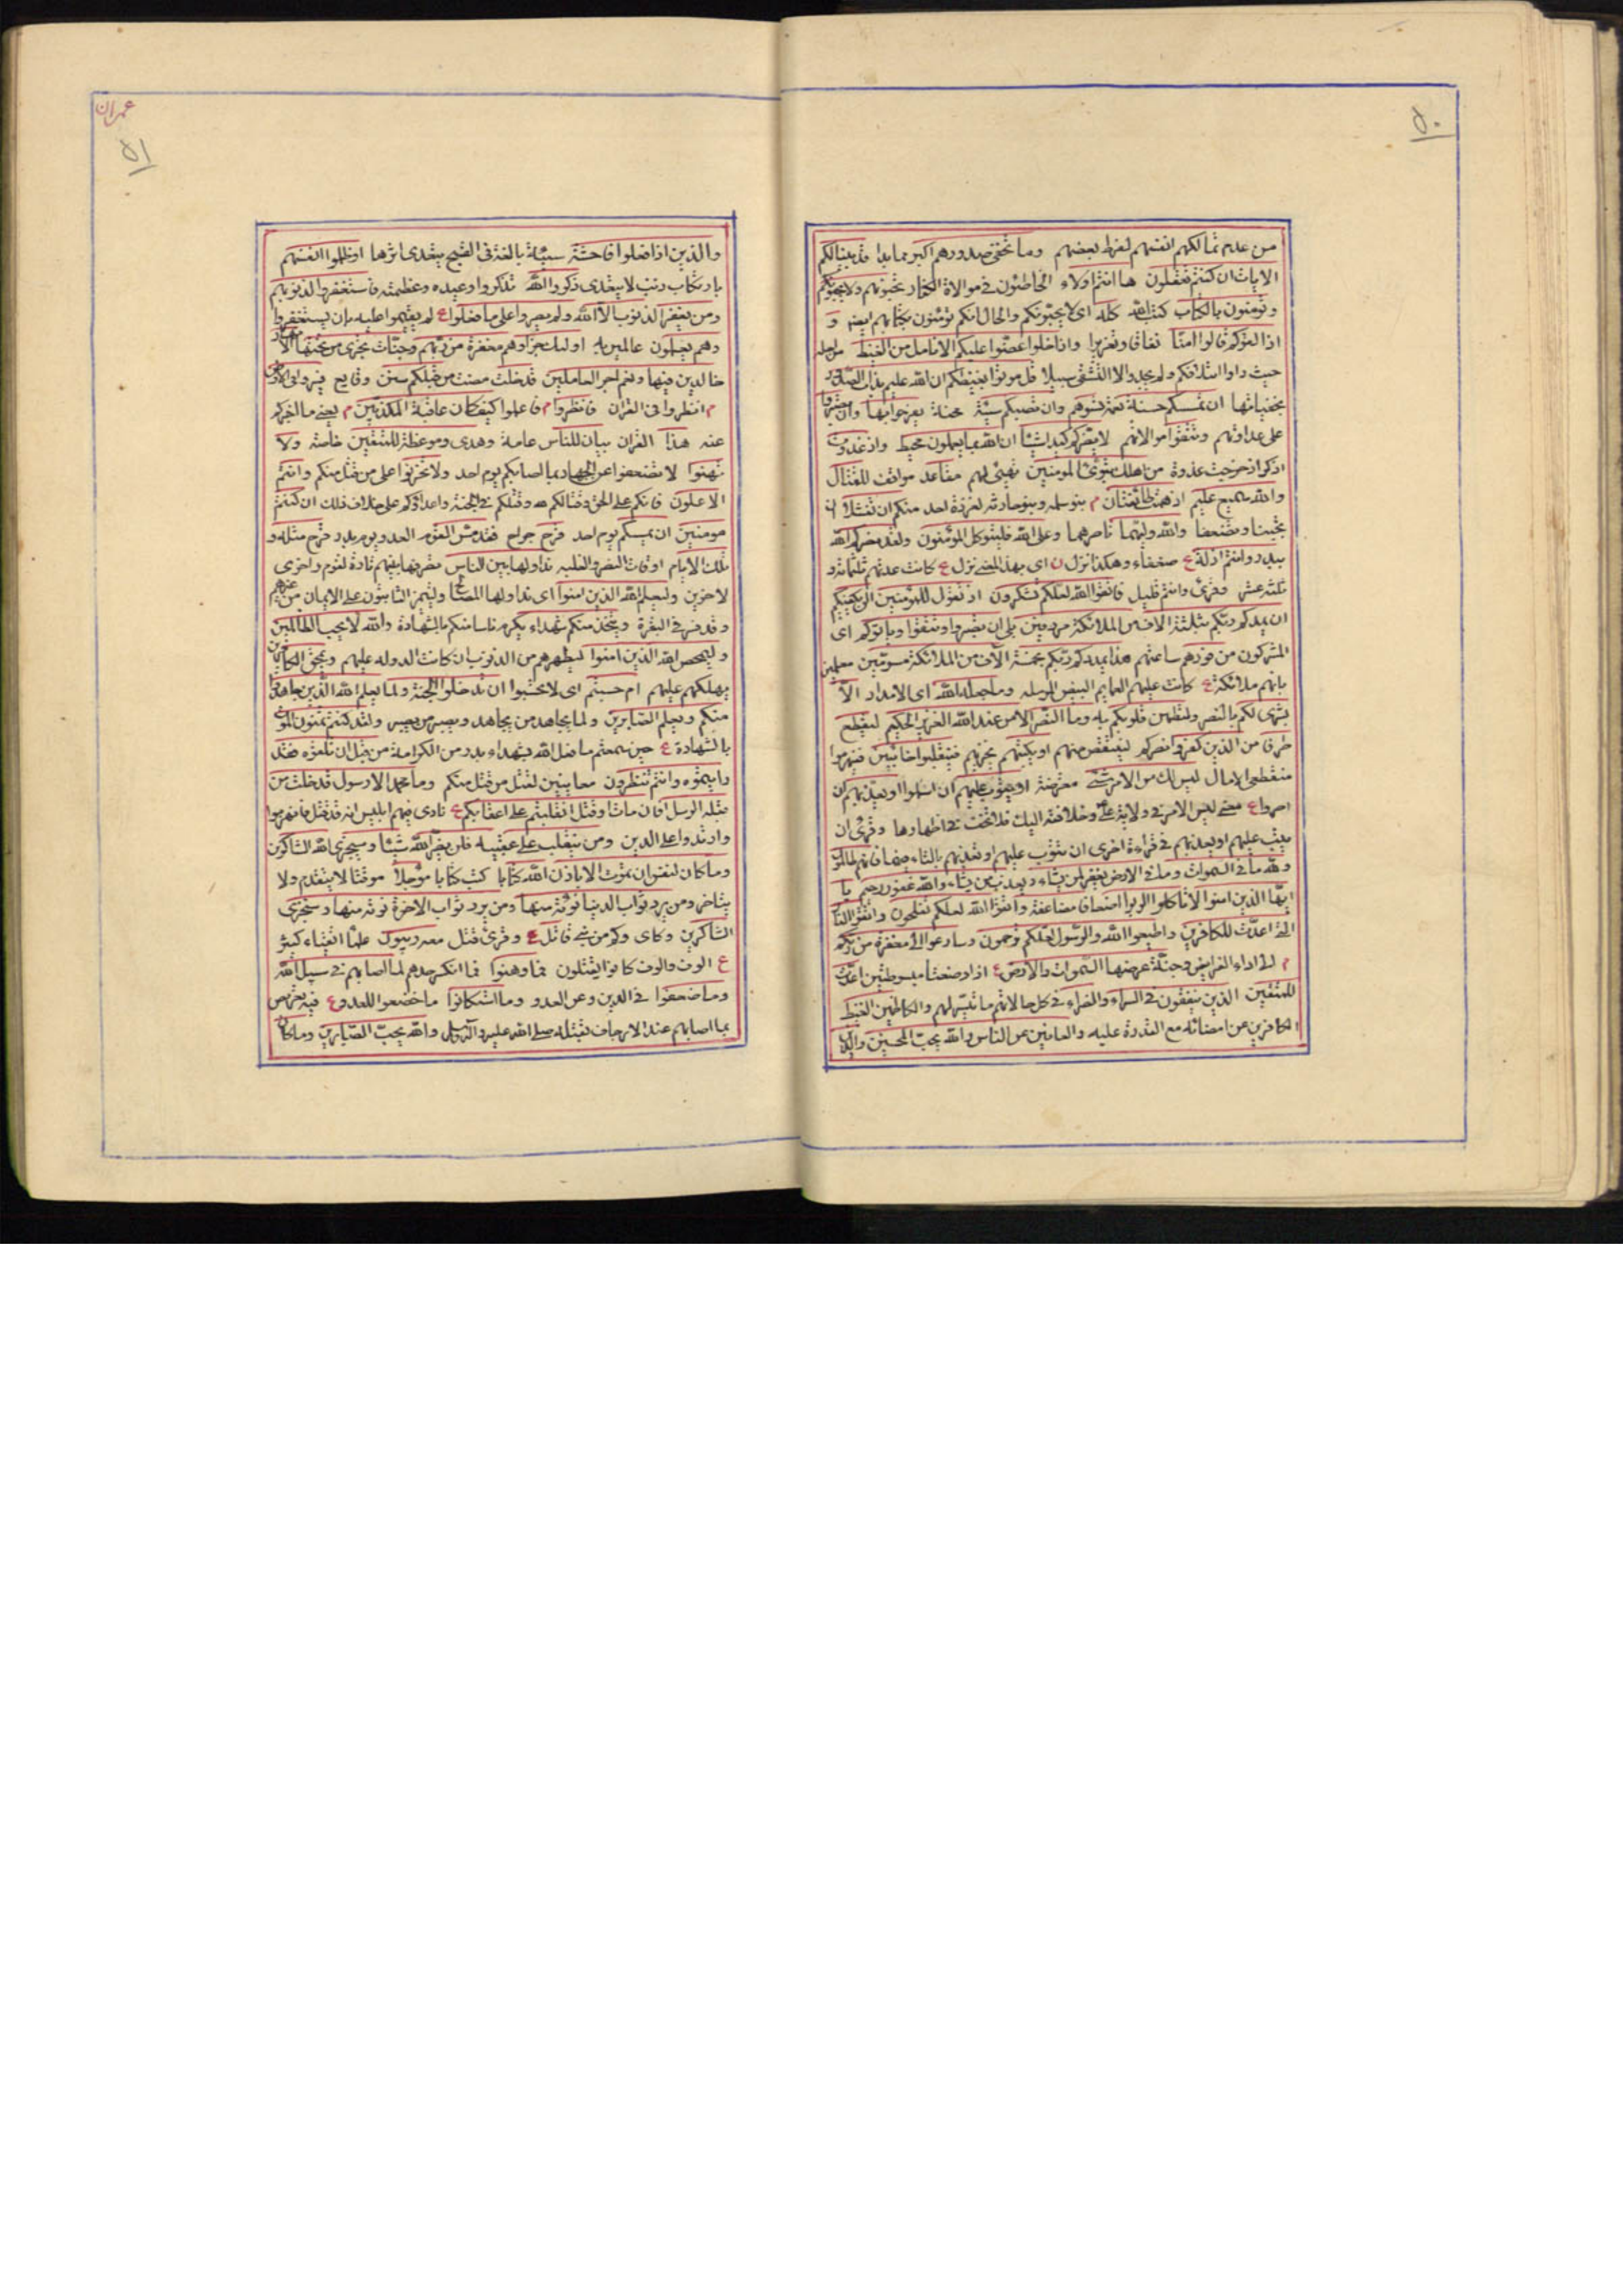 ٥٠
من عدم تمالكهم انفسهم لفرط بغضهم وما تخفى صدورهم اكبر مما بدا قد بينا لكم
الايات ان كنتم تعقلون ها انتم اولاء الخاطئون في موالاة الكفار تحبونهم ولا يحبونكم
وتومنون بالكتاب كتب الله كله اى لا يحبونكم والحال انكم تؤمنون بكتابهم ايضا و
اذا لقوكم قالوا امنا نفاقا وتغريرا واذا خلوا عضوا عليكم الانامل من الغيظ من اجله
حيث راوا ائتلافكم ولم يجدوا الى التشفى سبيلا قل موتوا بغيظكم ان الله عليم بذات الصدور
بخفياتها ان تمسسكم حسنة نعمة تسوهم وان تصبكم سيئة محنة يفرحوا بها وان تصبروا
على عداوتهم وتتقوا موالاتهم لا يضركم كيدهم شيئا ان الله بما يعملون محيط واذ غدوت
اذكر اذ خرجت غدوة من اهلك تبوئ المومنين تهيئ لهم مقاعد مواقف للقتال
والله سميع عليم اذ همت طائفتان م بنو سلمه وبنو حارثه لغزوة احد منكم ان تفشلا ان
تجبنا وتضعفا والله وليهما ناصرهما وعلى الله فليتوكل المؤمنون ولقد نصركم الله
ببدر وانتم اذلة ع ضعفاء وهكذا نزل ن اى بهذا المعنى نزل ع كانت عدتهم ثلثمائة و
ثلثة عشر وقرئ وانتم قليل فاتقوا الله لعلكم تشكرون اذ تقول للمؤمنين الن يكفيكم
ان يمدكم ربكم بثلثة الاف من الملائكة منزلين بلى ان تصبروا وتتقوا وياتوكم اى
المشركون من فورهم ساعتهم هذا يمددكم ربكم بخمسة الاف من الملائكة مسومين معلمين
بانهم ملائكة ع كانت عليهم العمايم البيض المرسله وما جعله الله اى الامداد الا
بشرى لكم بالنصر ولتطمئن قلوبكم به وما النصر الا من عند الله العزيز الحكيم ليقطع
طرفا من الذين كفروا نصركم لينتقص منهم او يكبتهم يخزيهم فينقلبوا خائبين فينهزموا
منقطعى الامال ليس لك من الامر شئ معترضة او يتوب عليهم ان اسلموا او يعذبهم ان
اصروا ع معنى ليس الامر في ولاية على وخلافته اليك فلا تخف في اظهارها وقرئ ان
يتب عليهم او يعذبهم في قراءة اخرى ان تتوب عليهم او تعذبهم بالتاء فيهما فانهم ظالمون
ولله ما في السموات وما في الارض يغفر لمن يشاء ويعذب من يشاء والله غفور رحيم يا
ايها الذين امنوا لا تاكلوا الربوا اضعافا مضاعفة واتقوا الله لعلكم تفلحون واتقوا النار
التى اعدت للكافرين واطيعوا الله والرسول لعلكم ترحمون وسارعوا الى مغفرة من ربكم
م الى اداء الفرايض وجنة عرضها السموات والارض ع اذا وضعتا مبسوطتين اعدت
للمتقين الذين ينفقون في السراء والضراء في كل حالاتهم ما تيسر لهم والكاظمين الغيظ
الكافين عن امضائه مع القدرة عليه والعافين عن الناس والله يحب المحسنين والذين
عمران
٥١
والذين اذا فعلوا فاحشة سيئة بالغة في القبح يتعدى اثرها او ظلموا انفسهم
بارتكاب ذنب لا يتعدى ذكروا الله تذكروا وعيده وعظمته فاستغفروا لذنوبهم
ومن يغفر الذنوب الا الله ولم يصروا على ما فعلوا ع لم يقيموا عليه بان يستغفروا
وهم يعلمون عالمين به اولئك جزاوهم مغفرة من ربهم وجنات تجرى من تحتها الانهار
خالدين فيها ونعم اجر العاملين قد خلت مضت من قبلكم سنن وقايع فسيروا في الارض
م انظروا في القران فانظروا م فاعلموا كيف كان عاقبة المكذبين م يعنى ما اخبركم
عنه هذا القران بيان للناس عامة وهدى وموعظة للمتقين خاصة ولا
تهنوا لا تضعفوا عن الجهاد بما اصابكم يوم احد ولا تحزنوا على من قتل منكم وانتم
الاعلون فانكم على الحق وقتالكم لله وقتلاكم في الجنة واعداؤكم على خلاف ذلك ان كنتم
مومنين ان يمسسكم يوم احد قرح جراح فقد مس القوم العدو يوم بدر قرح مثله و
تلك الايام اوقات النصر والغلبه نداولها بين الناس نصرفها بينهم تارة لقوم واخرى
لاخرين وليعلم الله الذين امنوا اى نداولها لمصالح وليتميز الثابتون على الايمان من غيرهم
وقد مر في البقرة ويتخذ منكم شهداء يكرم ناسا منكم بالشهادة والله لا يحب الظالمين
وليمحص الله الذين امنوا ليطهرهم من الذنوب ان كانت الدوله عليهم ويمحق الكافرين
يهلكهم عليهم ام حسبتم اى لا تحسبوا ان تدخلوا الجنة ولما يعلم الله الذين جاهدوا
منكم ويعلم الصابرين ولما يجاهد من يجاهد ويصبر من يصبر ولقد كنتم تمنون الموت
بالشهادة ع حين سمعتم ما فعل الله بشهداء بدر من الكرامة من قبل ان تلقوه فقد
رايتموه وانتم تنظرون معاينين لقتل من قتل منكم وما محمد الا رسول قد خلت من
قبله الرسل افان مات او قتل انقلبتم على اعقابكم ع نادى فيهم ابليس انه قد قتل فانهزموا
وارتدوا على الدين ومن ينقلب على عقبيه فلن يضر الله شيئا وسيجزى الله الشاكرين
وما كان لنفس ان تموت الا باذن الله كتابا كتب كتابا مؤجلا موقتا لا يتقدم ولا
يتاخر ومن يرد ثواب الدنيا نؤته منها ومن يرد ثواب الاخرة نوته منها وسنجزى
الشاكرين وكاى وكم من نبى قاتل ع وقرئ قتل معه ربيون علماء اتقياء كثير
ع الوف والوف كانوا يقتتلون فما وهنوا فما انكسر جدهم لما اصابهم في سبيل الله
وما ضعفوا في الدين وعن العدو وما استكانوا ما خضعوا للعدو ع فيه تعريض
بما اصابهم عند الارجاف بقتله صلى الله عليه واله وسلم والله يحب الصابرين وما كان